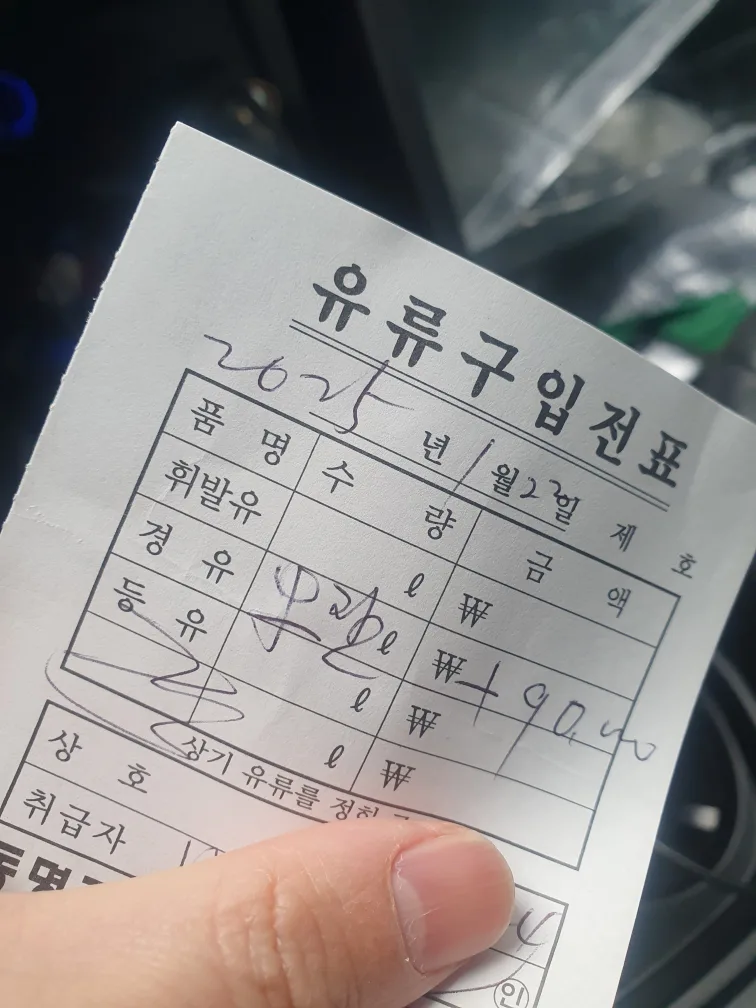 유류구입전표
2025년 1월 23일 제 호
품명 수량 금액
휘발유 ℓ ₩
경유 ℓ ₩
등유 ℓ ₩
ℓ ₩
상기 유류를 정히
상호
취급자
인